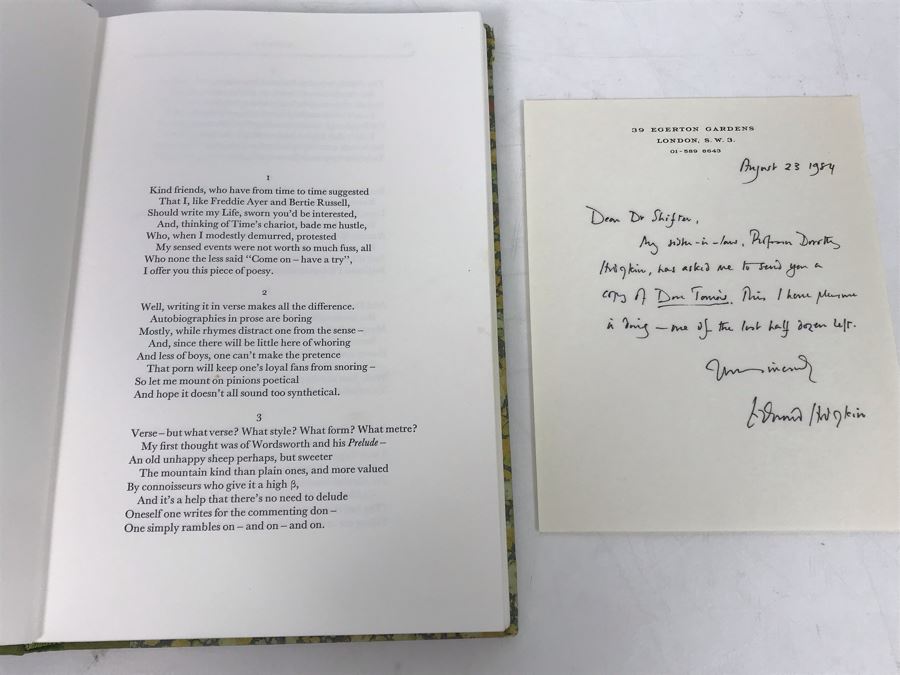 1
Kind friends, who have from time to time suggested
That I, like Freddie Ayer and Bertie Russell,
Should write my Life, sworn you'd be interested,
And, thinking of Time's chariot, bade me hustle,
Who, when I modestly demurred, protested
My sensed events were not worth so much fuss, all
Who none the less said “Come on – have a try”,
I offer you this piece of poesy.
2
Well, writing it in verse makes all the difference.
Autobiographies in prose are boring
Mostly, while rhymes distract one from the sense –
And, since there will be little here of whoring
And less of boys, one can't make the pretence
That porn will keep one's loyal fans from snoring –
So let me mount on pinions poetical
And hope it doesn't all sound too synthetical.
3
Verse – but what verse? What style? What form? What metre?
My first thought was of Wordsworth and his Prelude –
An old unhappy sheep perhaps, but sweeter
The mountain kind than plain ones, and more valued
By connoisseurs who give it a high β,
And it's a help that there's no need to delude
Oneself one writes for the commenting don –
One simply rambles on – and on – and on.
39 EGERTON GARDENS
LONDON, S. W. 3.
01-589 8643
August 23 1984
Dear Dr Shifter,
My sister-in-law, Professor Dorothy
Hodgkin, has asked me to send you a
copy of Don Tomás. This I have pleasure
in doing – one of the last half dozen left.
Yours sincerely
Edward Hodgkin